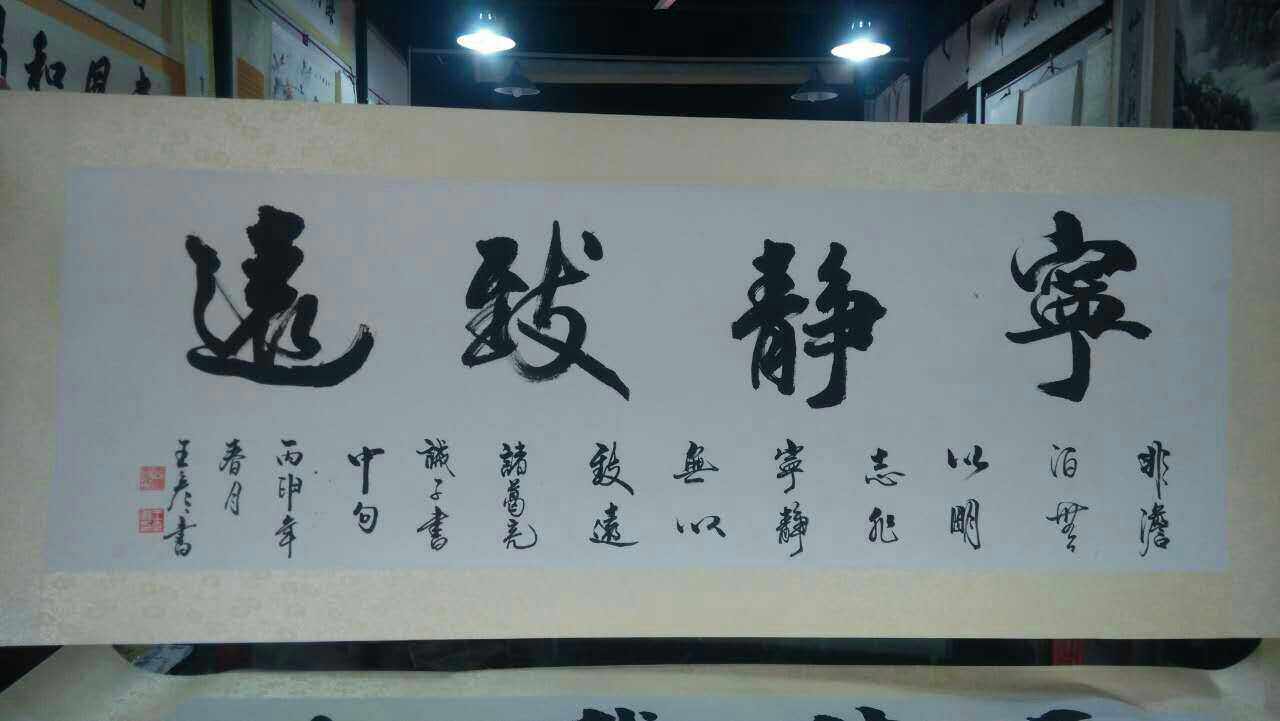 寧靜致遠
非澹
泊無
以明
志非
寧靜
無以
致遠
諸葛亮
誡子書
中句
丙申年
春月
王彦書
和